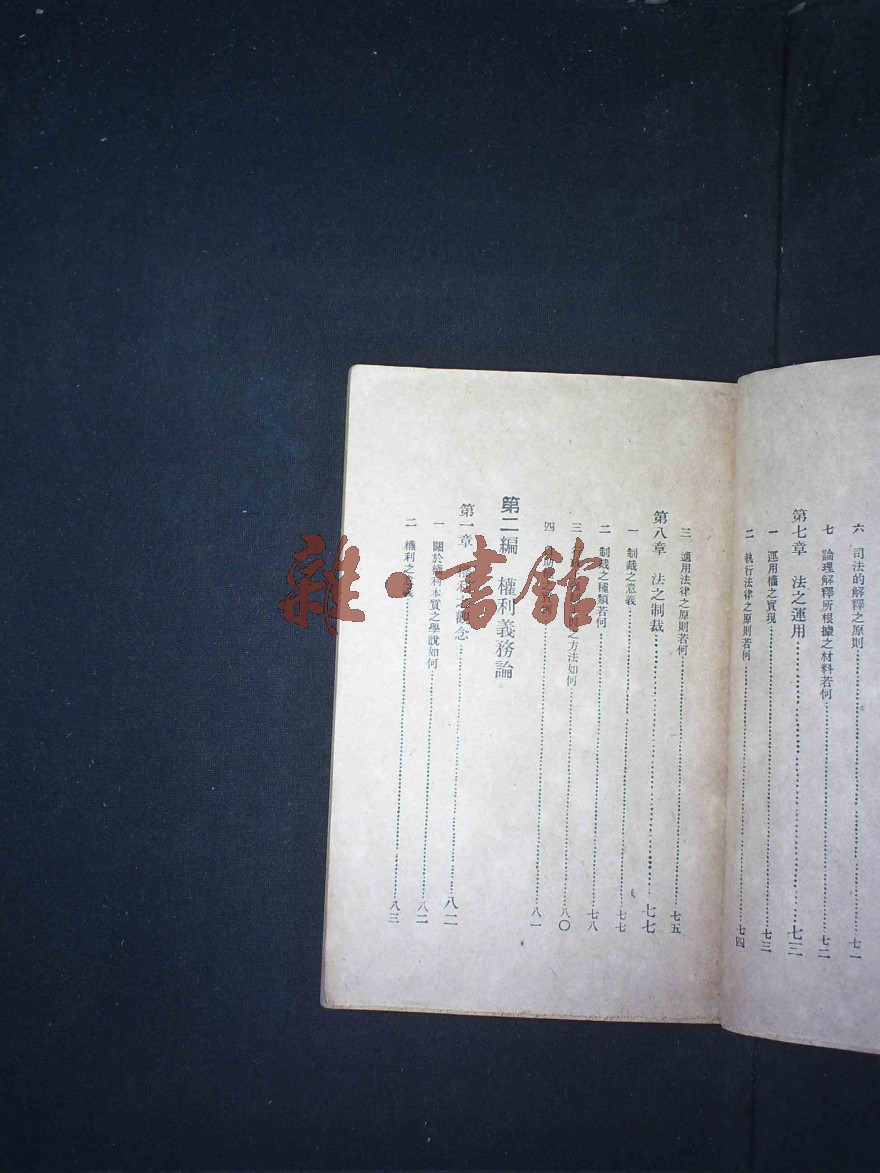 六 司法的解釋之原則……七一
七 論理解釋所根據之材料若何……七二
第七章 法之運用……七三
一 運用權之實現……七三
二 執行法律之原則若何……七四
三 適用法律之原則若何……七五
第八章 法之制裁……七七
一 制裁之意義……七七
二 制裁之種類若何……七八
三 之方法如何……八〇
四 ……八一
第二編 權利義務論
第一章 權利之觀念……八二
一 關於權利本質之學說如何……八二
二 權利之……八三
雜·書館